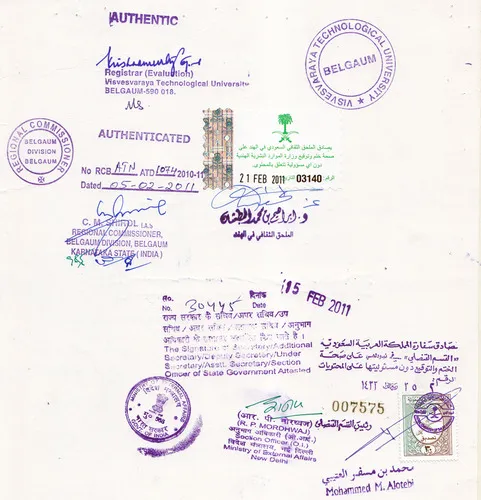 AUTHENTIC
Registrar (Evaluation)
Visvesvaraya Technological University
BELGAUM-590 018.
VISVESVARAYA TECHNOLOGICAL UNIVERSITY
BELGAUM
REGIONAL COMMISSIONER
BELGAUM
DIVISION
BELGAUM
AUTHENTICATED
No RCB ATN ATD 1074 2010-11
Dated 05-02-2011
C. M. SHIROL I.A.S
REGIONAL COMMISSIONER,
BELGAUM DIVISION, BELGAUM
KARNATAKA STATE (INDIA)
يصادق الملحق الثقافي السعودي في الهند على
صحة ختم وتوقيع وزارة الموارد البشرية الهندية
دون أي مسؤولية تتعلق بالمحتوى
21 FEB 2011
الرقم: 03140
د. ابراهيم بن محمد البطشان
الملحق الثقافي في الهند
No. 30445 दिनांक Date 15 FEB 2011
राज्य सरकार के सचिव/अपर सचिव/उप
सचिव / अवर सचिव / सहायक सचिव / अनुभाग
The Signature of Secretary/Additional
Secretary/Deputy Secretary/Under
Secretary/Asstt. Secretary/Section
Officer of State Government Attested
صادق سفارة المملكة العربية السعودية
الختم والتوقيع دون مسئوليتها على المحتويات
007575
رئيس القسم القنصلي
(आर. पी. मोरध्वज)
(R. P. MORDHWAJ)
अनुभाग अधिकारी (ओ.आई.)
Section Officer (O.I.)
विदेश मंत्रालय, नई दिल्ली
Ministry of External Affairs
New Delhi
محمد بن مسفر العتيبي
Mohammed M. Alotebi